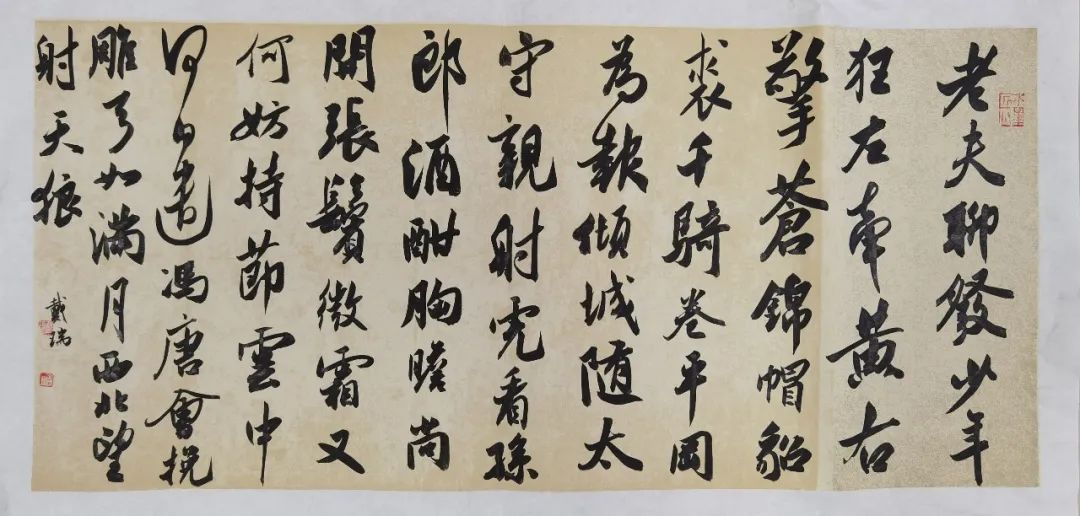 老夫聊發少年
狂左牽黃右
擎蒼錦帽貂
裘千騎卷平岡
為報傾城随太
守親射虎看孫
郎酒酣胸膽尚
開張鬢微霜又
何妨持節雲中
何日遣馮唐會挽
雕弓如滿月西北望
射天狼
戴瑞